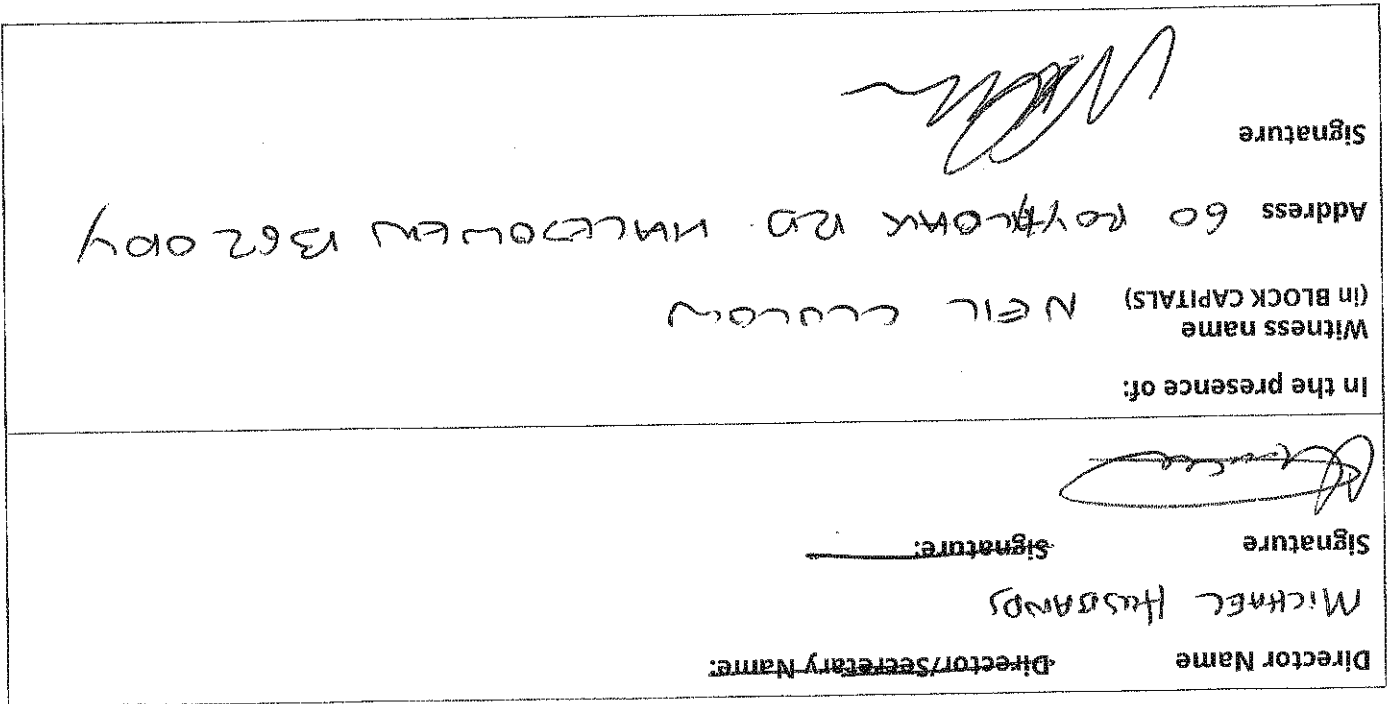 Director Name Director/Secretary Name:
MICHAEL HUSBANDS
Signature Signature:
In the presence of:
Witness name
(in BLOCK CAPITALS) NEIL CLULOW
Address 60 ROYAL OAK RD. HALESOWEN B62 0DY
Signature